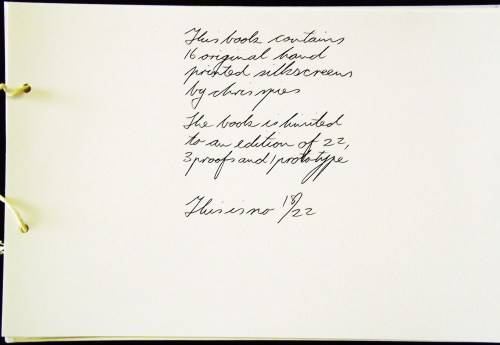 This book contains
16 original hand
printed silkscreens
by chris pies
The book is limited
to an edition of 22,
3 proofs and 1 prototype
This is no 18/22